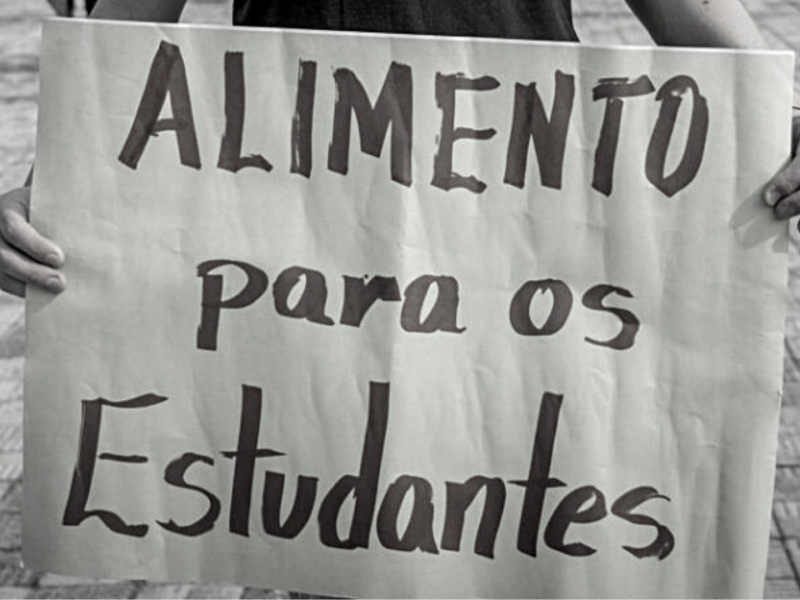 ALIMENTO
para os
Estudantes